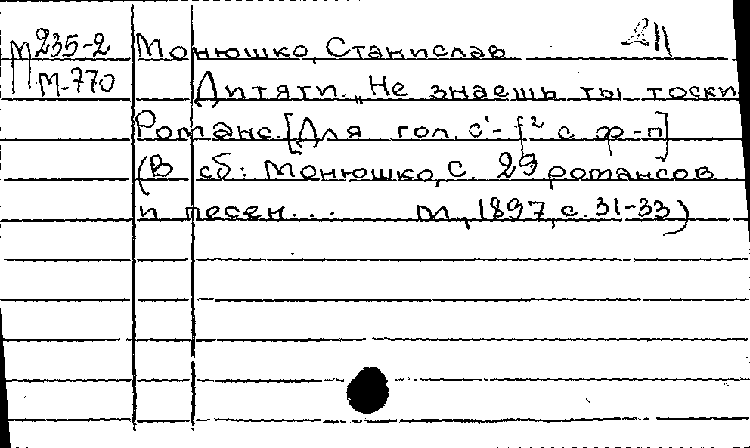 М 235-2 Монюшко, Станислав
М-770 Дитяти. „Не знаешь ты тоски
Романс. [Для гол. c¹-f² с ф-п]
(В сб: Монюшко, С. 29 романсов
и песен... М, 1897, с. 31-33)